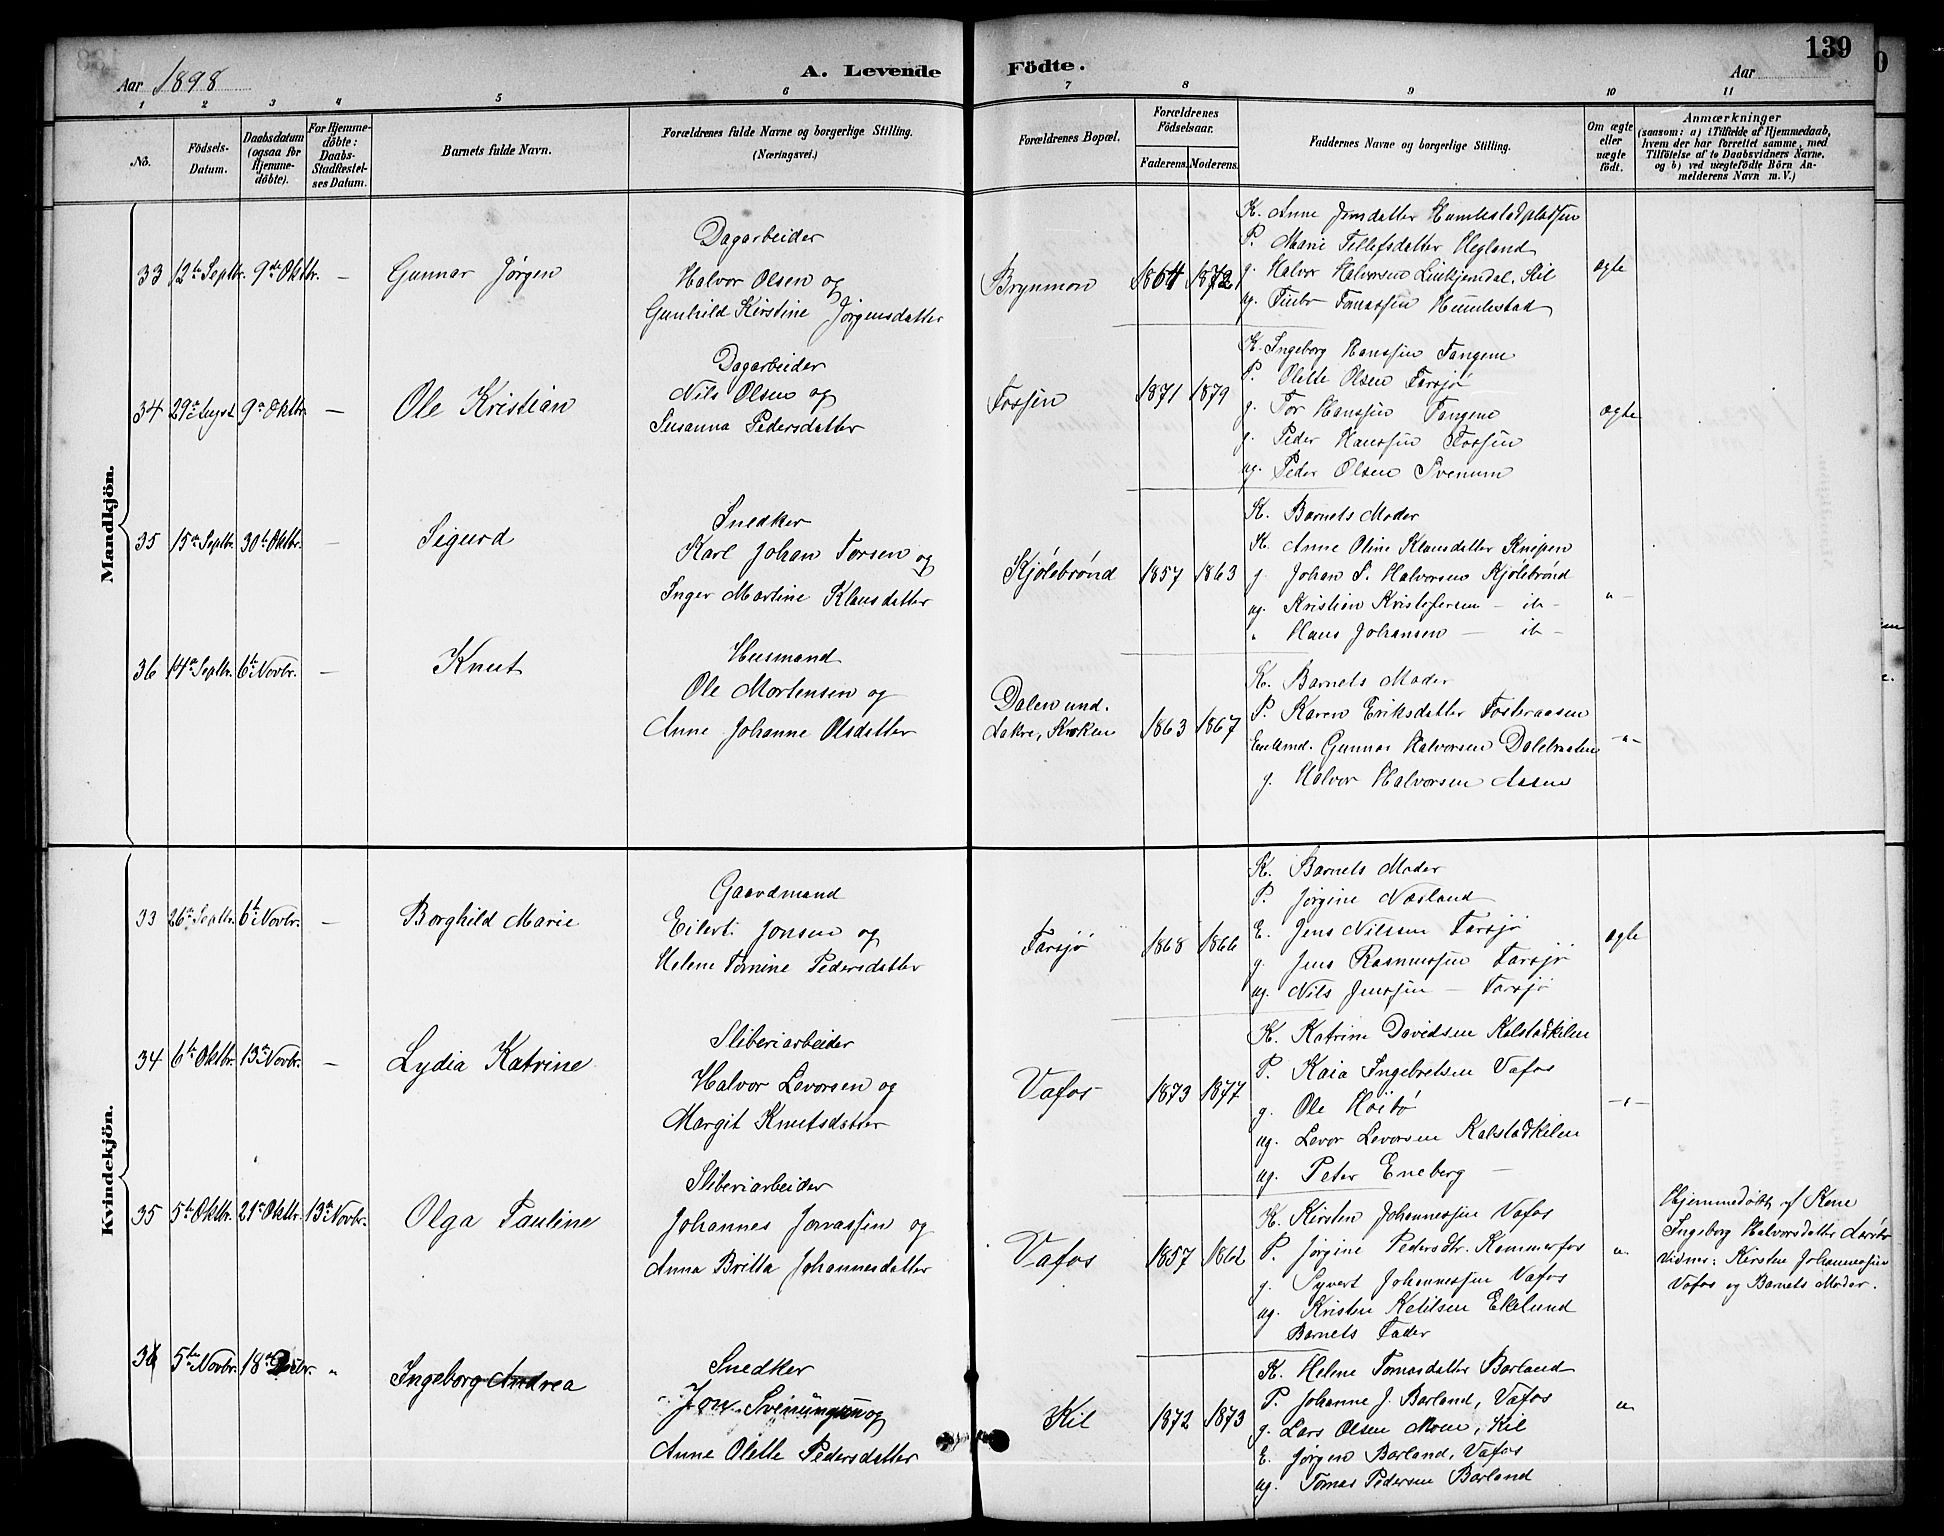 Aar 1898
A. Levende Födte.
Aar
139
1 2 3 4 5 6 7 8 9 10 11
No.
Födsels-Datum.
Daabsdatum (ogsaa for Hjemme-döbte).
For Hjemme-döbte: Daabs-Stadfæstel-ses Datum.
Barnets fulde Navn.
Forældrenes fulde Navne og borgerlige Stilling.
(Næringsvei.)
Forældrenes Bopæl.
Forældrenes Födselsaar.
Faderens. Moderens.
Faddernes Navne og borgerlige Stilling.
Om ægte eller uægte födt.
Anmærkninger
(saasom: a) i Tilfælde af Hjemmedaab,
hvem der har forrettet samme, med
Tilföielse af to Daabsvidners Navne,
og b) ved uægtefödte Börn An-
melderens Navn m. V.)
Mandkjön.
33 12te Septbr. 9de Oktbr. — Gunnar Jørgen
Dagarbeider
Halvor Olsen og
Gunhild Kirstine Jørgensdatter
Brynmon 1864 1872
K. Anne Jonsdatter Humlestadpladsen
P. Marie Tellefsdatter Hegland
g. Halvor Halvorsen Lindkjendal, Kil
ug. Tomassen Humlestad
ægte
34 29de August 9de Oktbr. — Ole Kristian
Dagarbeider
Nils Olsen og
Susanna Pedersdatter
Fossen 1871 1879
K. Ingeborg Hanssen Tangene
P. Olette Olsen Farsjø
g. Tor Hanssen Tangene
g. Peder Hanssen Fossen
ug. Peder Olsen Svenum
ægte
35 15de Septbr. 30te Oktbr. — Sigurd
Snedker
Karl Johan Torsen og
Inger Martine Klausdatter
Kjølebrønd 1857 1863
K. Barnets Moder
K. Anne Oline Klausdatter Knipen
g. Johan S. Halvorsen Kjølebrønd
ug. Kristian Kristofersen — ib —
" Hans Johansen — ib —
— " —
36 14de Septbr. 6te Novbr. — Knut
Husmand
Ole Mortensen og
Anne Johanne Olsdatter
Dalen und.
Lakre, Kroken 1863 1867
K. Barnets Moder
P. Karen Eriksdatter Fosteraasen
Enkemd. Gunnar Halvorsen Dalebraaten
g. Halvor Halvorsen Aasen
— " —
Kvindekjön.
33 26de Septbr. 6te Novbr. — Borghild Marie
Gaardmand
Eilert Jonsen og
Helene Tomine Pedersdatter
Farsjø 1868 1866
K. Barnets Moder
P. Jørgine Næsland
E. Jens Nilssen Farsjø
g. Jens Rasmussen Farsjø
ug. Nils Jenssen — Farsjø
ægte
34 6te Oktbr. 13de Novbr. — Lydia Katrine
Sliberiarbeider
Halvor Levorsen og
Margit Knutsdatter
Vafos 1873 1877
K. Katrine Davidsen Kalstadkilen
P. Kaia Ingebretsen Vafos
g. Ole Høibø
ug. Levor Levorsen Kalstadkilen
ug. Peter Eneberg —
— " —
35 5te Oktbr. 21de Oktbr. 13de Novbr. Olga Pauline
Sliberiarbeider
Johannes Jonassen og
Anna Britta Johannesdatter
Vafos 1857 1862
K. Kirsten Johannessen Vafos
P. Jørgine Pedersdtr. Kammerfos
g. Syvert Johannessen Vafos
ug. Kristen Ketilsen Ekelund
Barnets Fader
"
Hjemmedøbt af Kone
Ingeborg Halvorsdatter
Vidner: Kirsten Johannessen
Vafos og Barnets Moder.
36 5te Novbr. 18de Decbr. " Ingeborg Andrea
Snedker
Jon Sveinungsen og
Anne Olette Pedersdatter
Kil 1872 1873
K. Helene Tomasdatter Barland
P. Johanne J. Barland, Vafos
g. Lars Olsen Moen, Kil
E. Jørgen Barland, Vafos
ug. Tomas Pedersen Barland
"